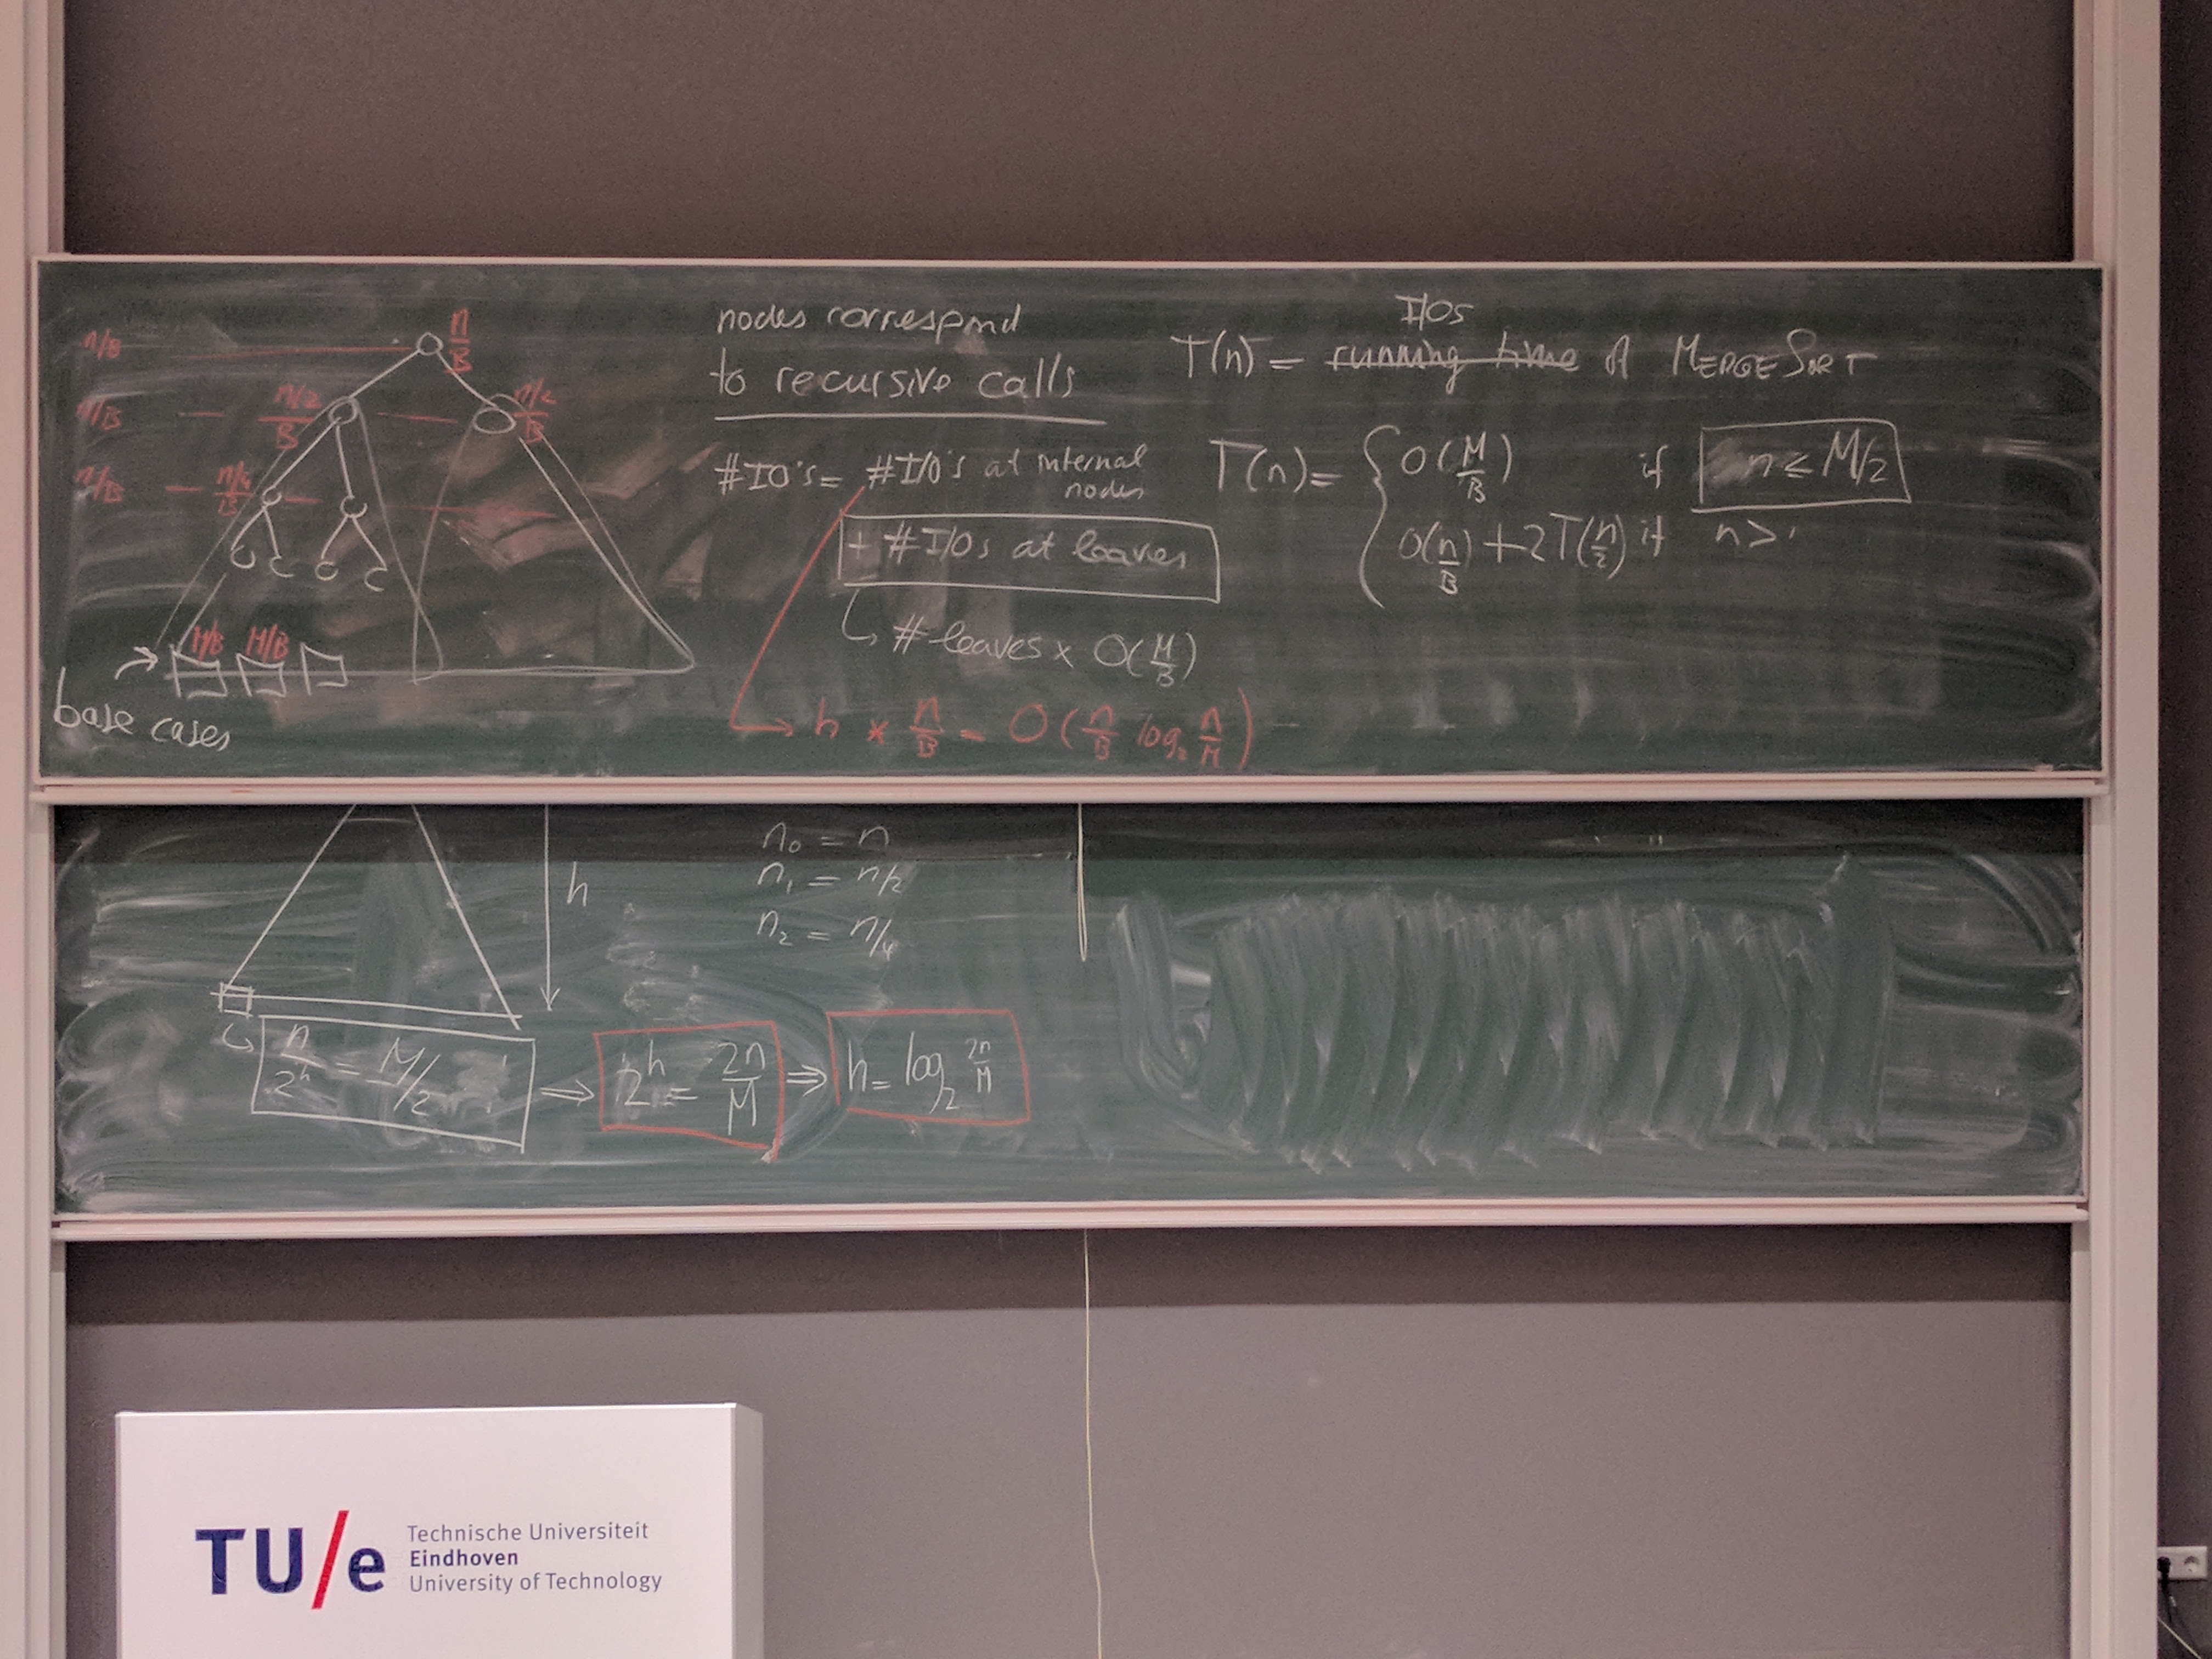 n/B
n/B
n/B
n/B
n/2/B
n/2/B
n/4/B
M/B M/B
base cases
nodes correspond
to recursive calls
#IO's = #I/O's at internal nodes
+ #I/Os at leaves
↳ # leaves x O(M/B)
→ h * n/B = O(n/B log₂ n/M)
I/Os
T(n) = running time of MERGESORT
T(n) = { O(M/B) if n ≤ M/2
O(n/B) + 2T(n/2) if n >
h
n₀ = n
n₁ = n/2
n₂ = n/4
n/2^h = M/2 ⇒ 2^h = 2n/M ⇒ h = log₂ 2n/M
TU/e Technische Universiteit
Eindhoven
University of Technology